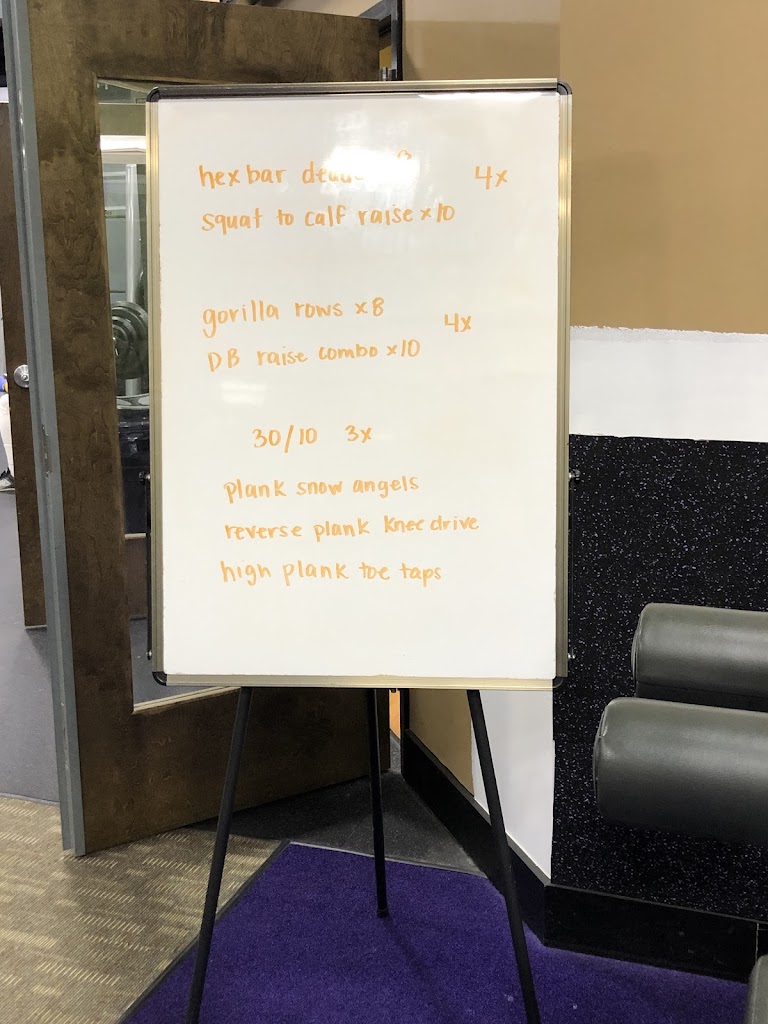 hex bar 4x
squat to calf raise x10
gorilla rows x8
4x
DB raise combo x10
30/10 3x
plank snow angels
reverse plank knee drive
high plank toe taps